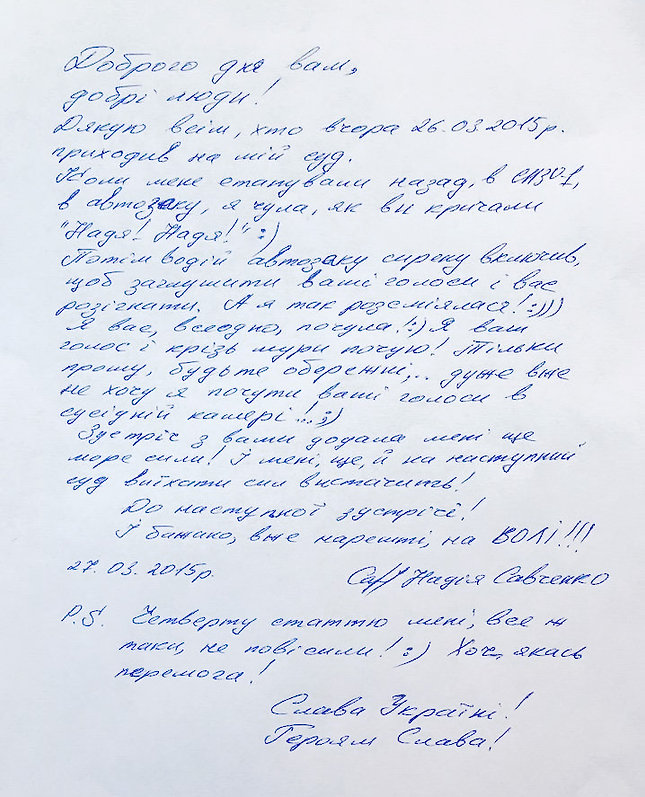 Доброго дня вам,
добрі люди!
Дякую всім, хто вчора 26.03.2015р.
приходив на мій суд.
Коли мене етапували назад, в СИЗО-1,
в автозаку, я чула, як ви кричали
"Надя! Надя!" :)
Потім водій автозаку сирену включив,
щоб заглушити ваші голоси і вас
розігнати. А я так розсміялася! :)))
Я вас, всеодно, почула! :) Я ваш
голос і крізь мури почую! Тільки
прошу, будьте обережні,.. дуже вже
не хочу я почути ваші голоси в
сусідній камері!.. ;)
Зустріч з вами додала мені ще
море сили! І мені, ще, й на наступний
суд виїхати сил вистачить!
До наступної зустрічі!
І бажано, вже нарешті, на ВОЛІ!!!
27.03.2015р. Надія Савченко
P.S. Четверту статтю мені, все ж
таки, не повісили! :) Хоч, якась
перемога!
Слава Україні!
Героям Слава!